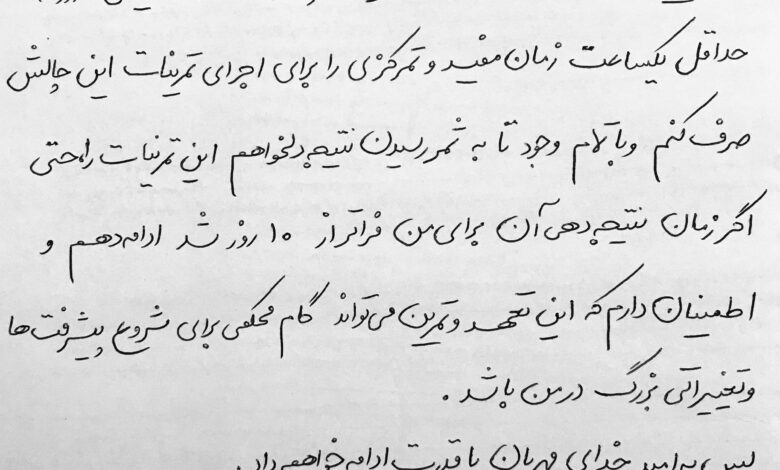 حداقل یکساعت زمان مفید و تمرکزی را برای اجرای تمرینات این چالش
صرف کنم و با تمام وجود تا به ثمر رسیدن نتیجه دلخواهم این تمرینات را حتی
اگر زمان نتیجه دهی آن برای من فراتر از ۱۰ روز شد ادامه دهم و
اطمینان دارم که این تعهد و تمرین می‌تواند گام محکمی برای شروع پیشرفت‌ها
و تغییراتی بزرگ در من باشد.
پس به امید خدای مهربان با قدرت ادامه خواهم داد.